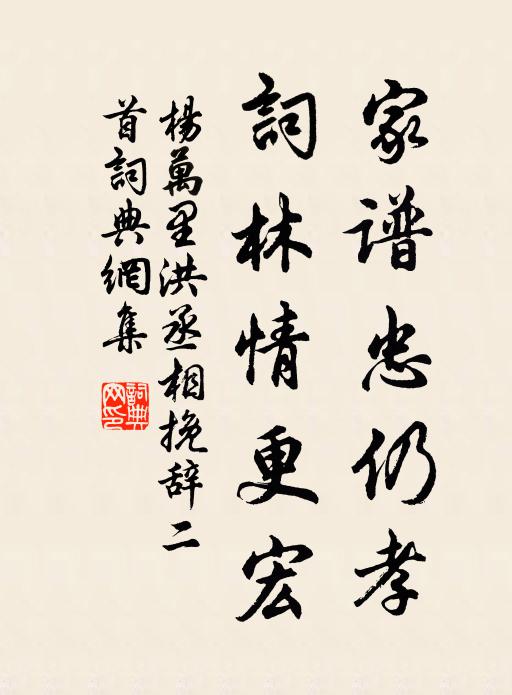 家谱忠仍孝
詞林情更宏
楊萬里洪丞相挽辞二
首詞典網集
詞典
网印